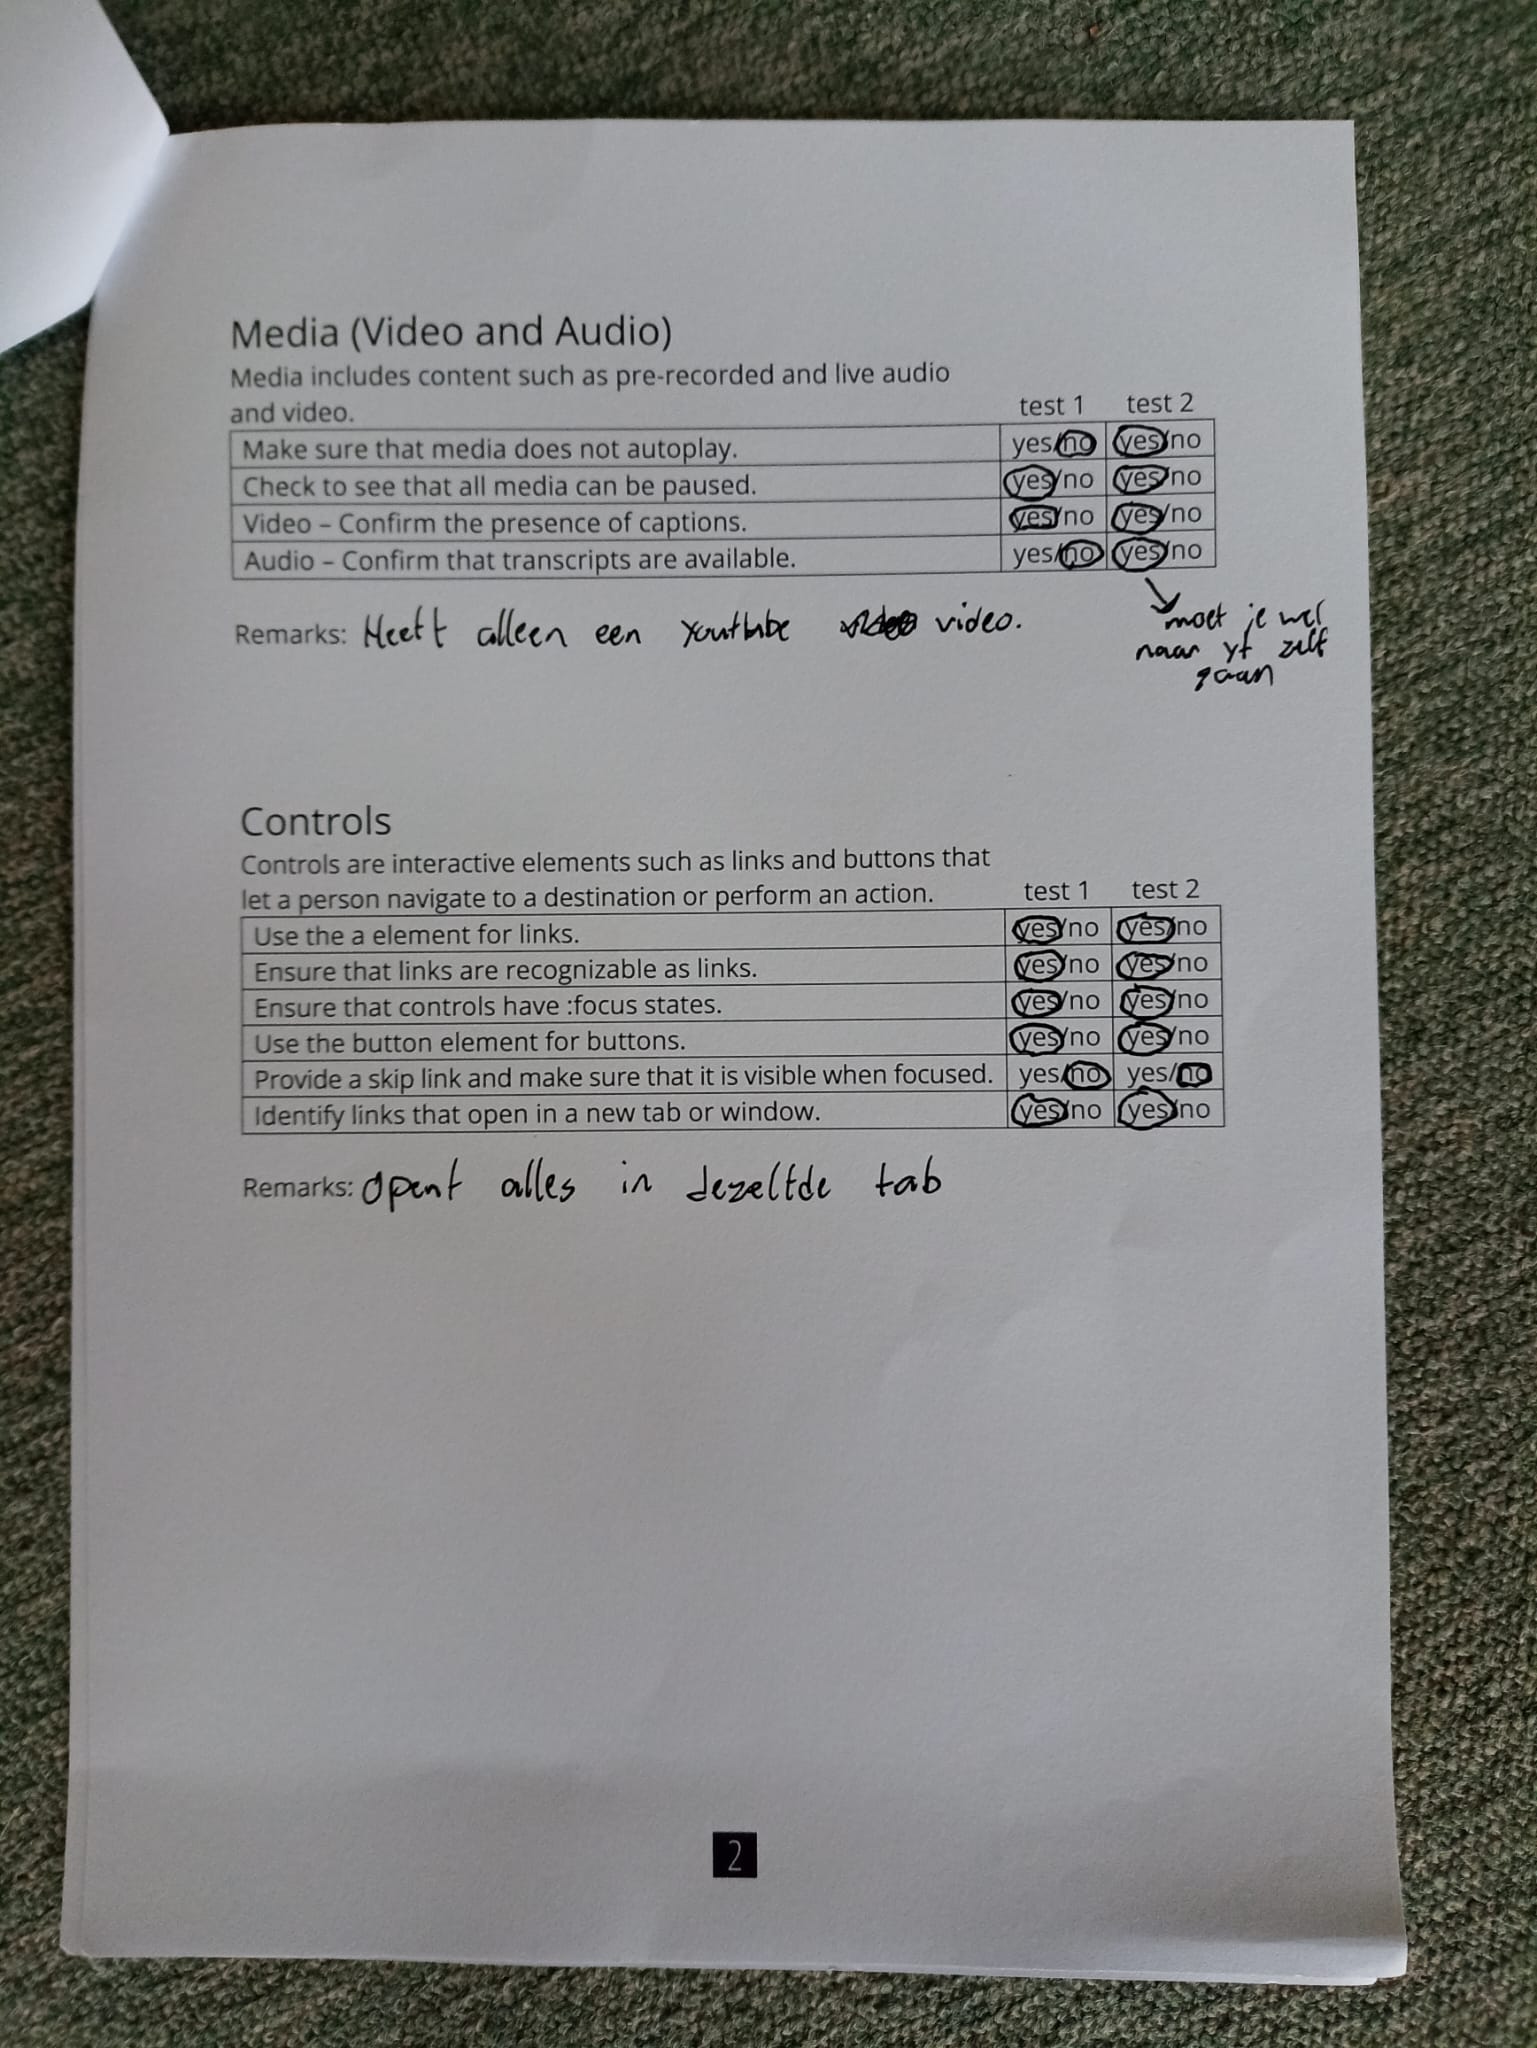 Media (Video and Audio)
Media includes content such as pre-recorded and live audio
and video. test 1 test 2
Make sure that media does not autoplay. yes/no yes/no
Check to see that all media can be paused. yes/no yes/no
Video – Confirm the presence of captions. yes/no yes/no
Audio – Confirm that transcripts are available. yes/no yes/no
Remarks: Heeft alleen een youtube video.
moet je wel
naar yt zelf
gaan
Controls
Controls are interactive elements such as links and buttons that
let a person navigate to a destination or perform an action. test 1 test 2
Use the a element for links. yes/no yes/no
Ensure that links are recognizable as links. yes/no yes/no
Ensure that controls have :focus states. yes/no yes/no
Use the button element for buttons. yes/no yes/no
Provide a skip link and make sure that it is visible when focused. yes/no yes/no
Identify links that open in a new tab or window. yes/no yes/no
Remarks: Opent alles in dezelfde tab
2